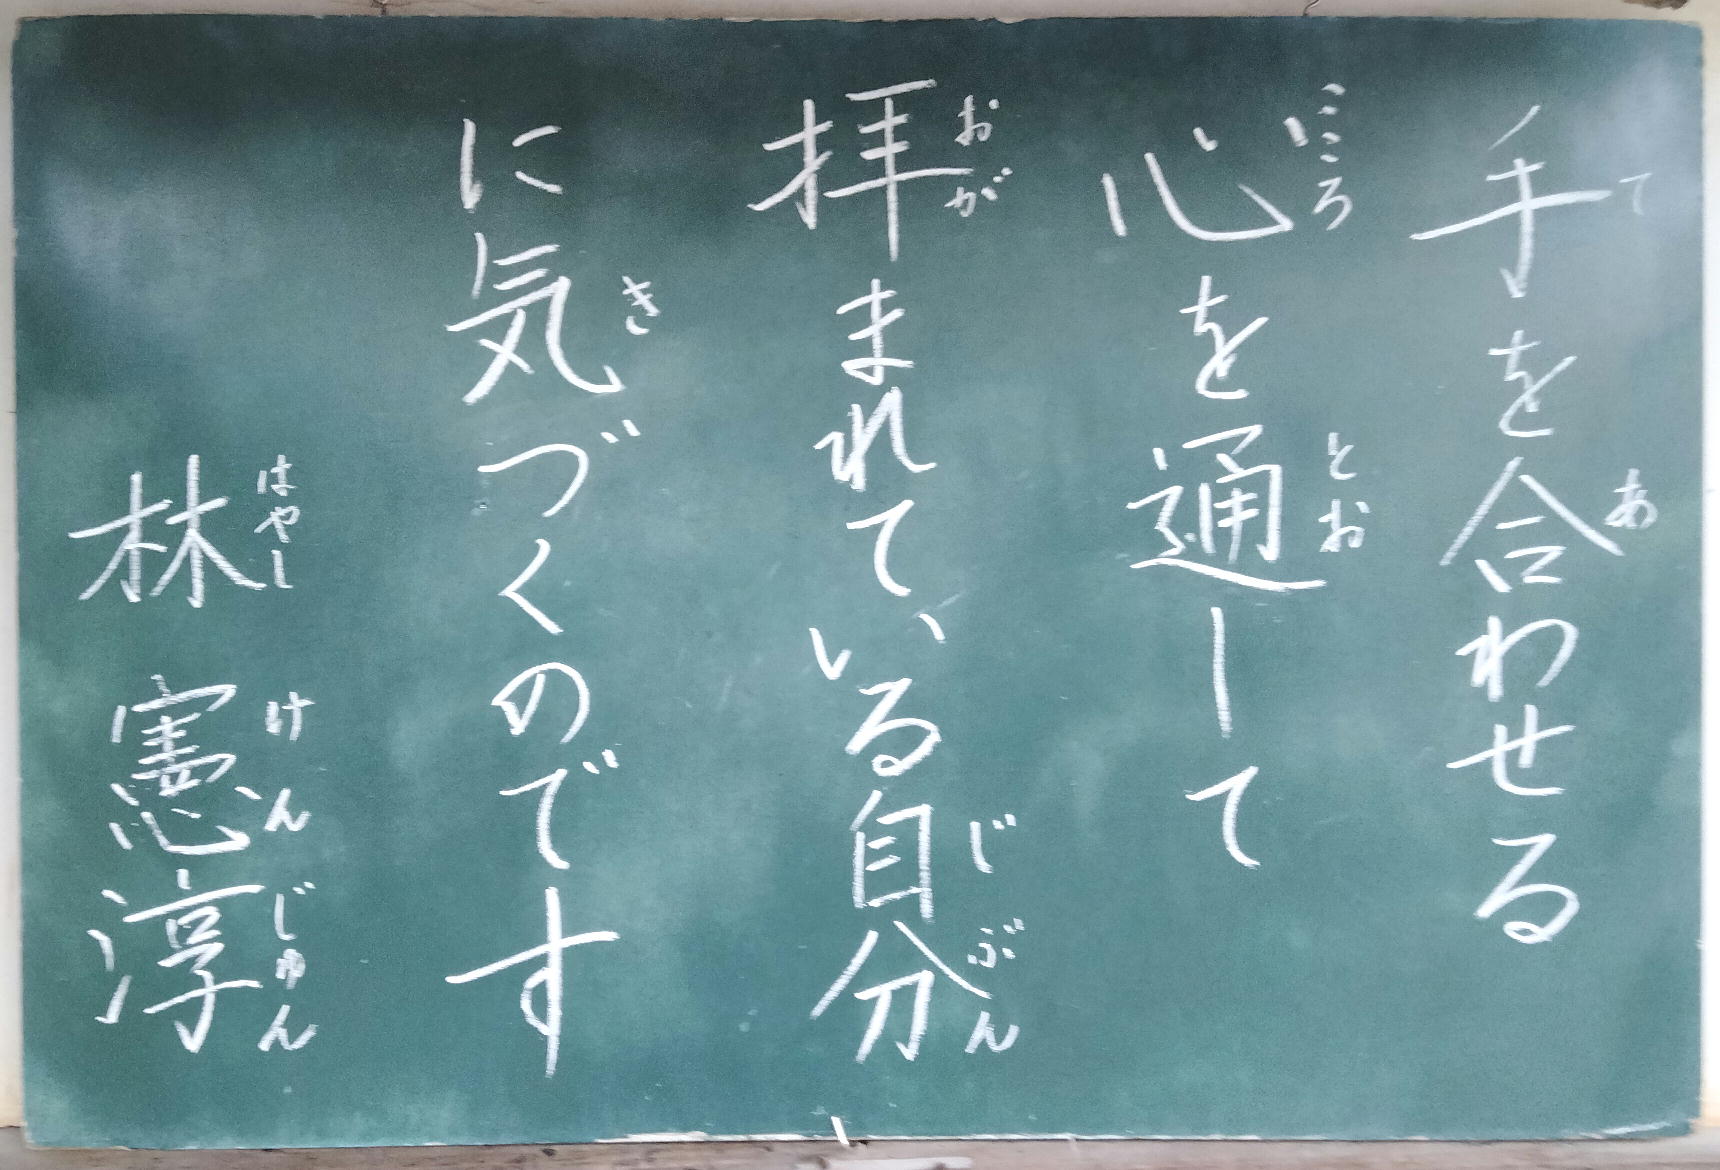 手を合わせる
心を通して
拝まれている自分
に気づくのです
林 憲淳
て
あ
こころ
とお
おが
じぶん
き
はやし
けんじゅん